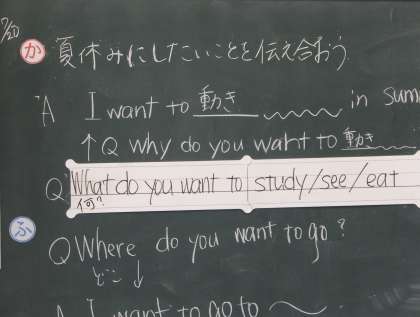 7/20
か 夏休みにしたいことを伝え合おう
A I want to 動き in sum
↑Q Why do you want to 動き
Q What do you want to study/see/eat
何?
ふ
Q Where do you want to go?
どこ↓
A I want to go to